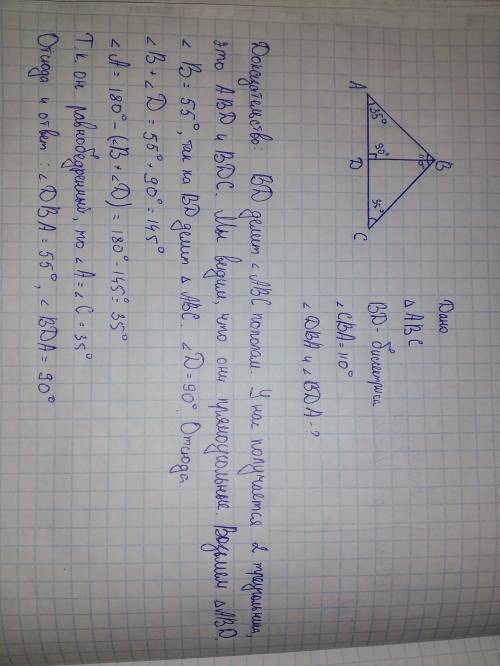 Дано
△ABC
BD - биссектриса
∠CBA = 110°
∠DBA и ∠BDA - ?
B
110°
A
35°
90°
D
35°
C
Доказательство: BD делит ∠ABC пополам. У нас получается 2 треугольника,
это ABD и BDC. Мы видим, что они прямоугольные. Возьмем △ABD.
∠B = 55°, так на BD делит △ABC ∠D = 90°. Отсюда
∠B + ∠D = 55° + 90° = 145°
∠A = 180° - (∠B + ∠D) = 180° - 145° = 35°
Т.к. он равнобедренный, то ∠A = ∠C = 35°
Отсюда и ответ: ∠DBA = 55°, ∠BDA = 90°